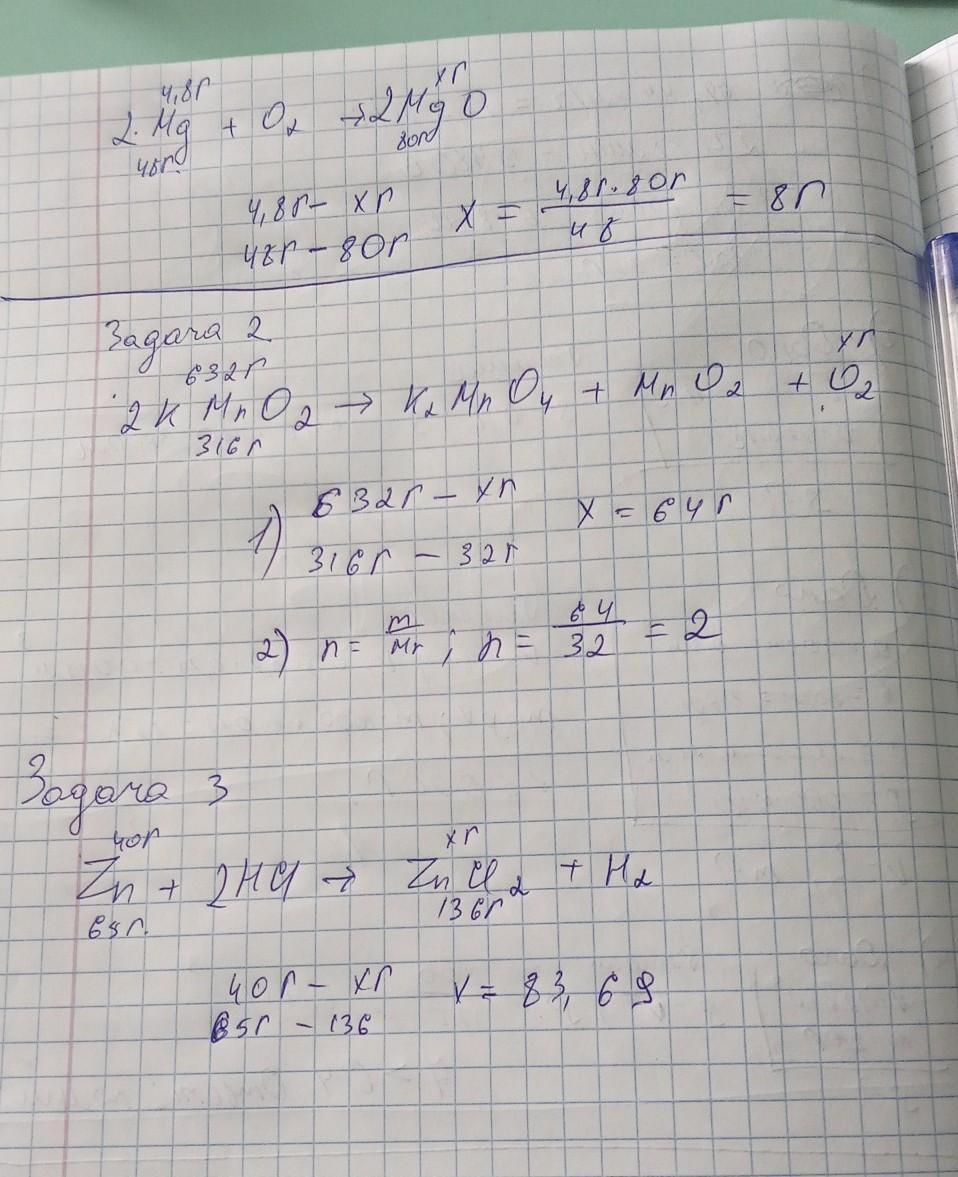 4,8г xг
2·Mg + O₂ → 2MgO
48г. 80г
4,8г – xг x = 4,8г·80г / 48 = 8г
48г – 80г
Задача 2
632г xг
2K MnO₂ → K₂MnO₄ + MnO₂ + O₂
316г
1) 632г – xг x = 64г
316г – 32г
2) n = m/Mr ; n = 64/32 = 2
Задача 3
40г xг
Zn + 2HCl → ZnCl₂ + H₂
65г. 136г
40г – xг x = 83,69
65г – 136